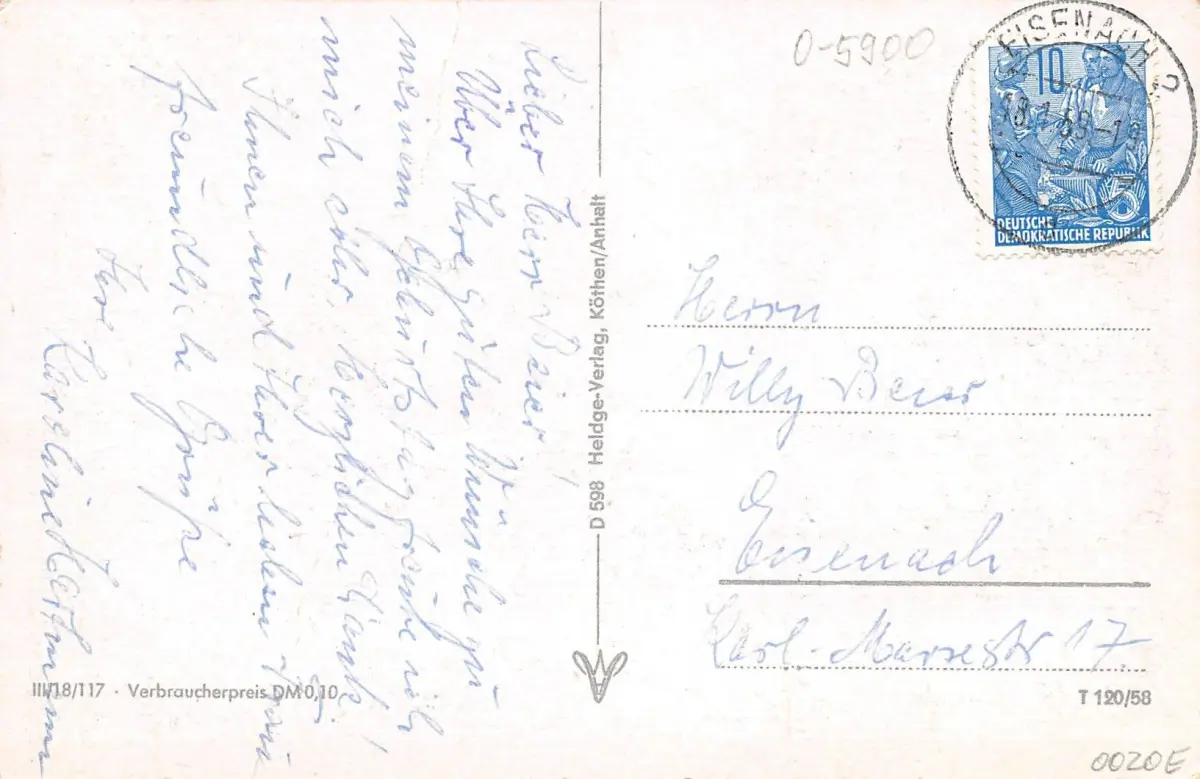 Lieber Herr Beier!
Über Ihre guten Wünsche zu
meinem Geburtstag freute ich
mich sehr. Herzlichen Dank!
Ihnen und Ihrer lieben
freundliche Grüße
Ihre
Hartmann
D 598 Heldge-Verlag, Köthen/Anhalt
III/18/117 · Verbraucherpreis DM 0,10
0-5900
EISENACH 2
10
DEUTSCHE
DEMOKRATISCHE REPUBLIK
Herrn
Willy Beier
Eisenach
Karl-Marxstr 17.
T 120/58
0020E